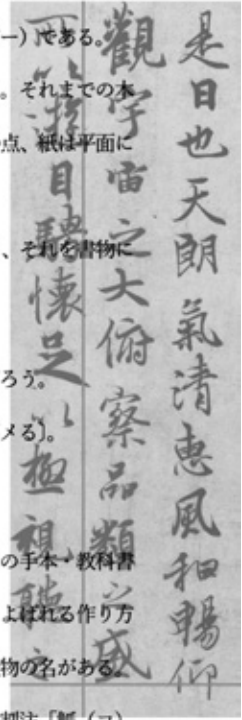 是日也天朗氣清惠風和暢仰
觀宇宙之大俯察品類之盛
所以遊目騁懷足以極視聽之
ー）である。
。それまでの木
点、紙は平面に
、それを書物に
ろう。
メる）。
の手本・教科書
よばれる作り方
物の名がある。